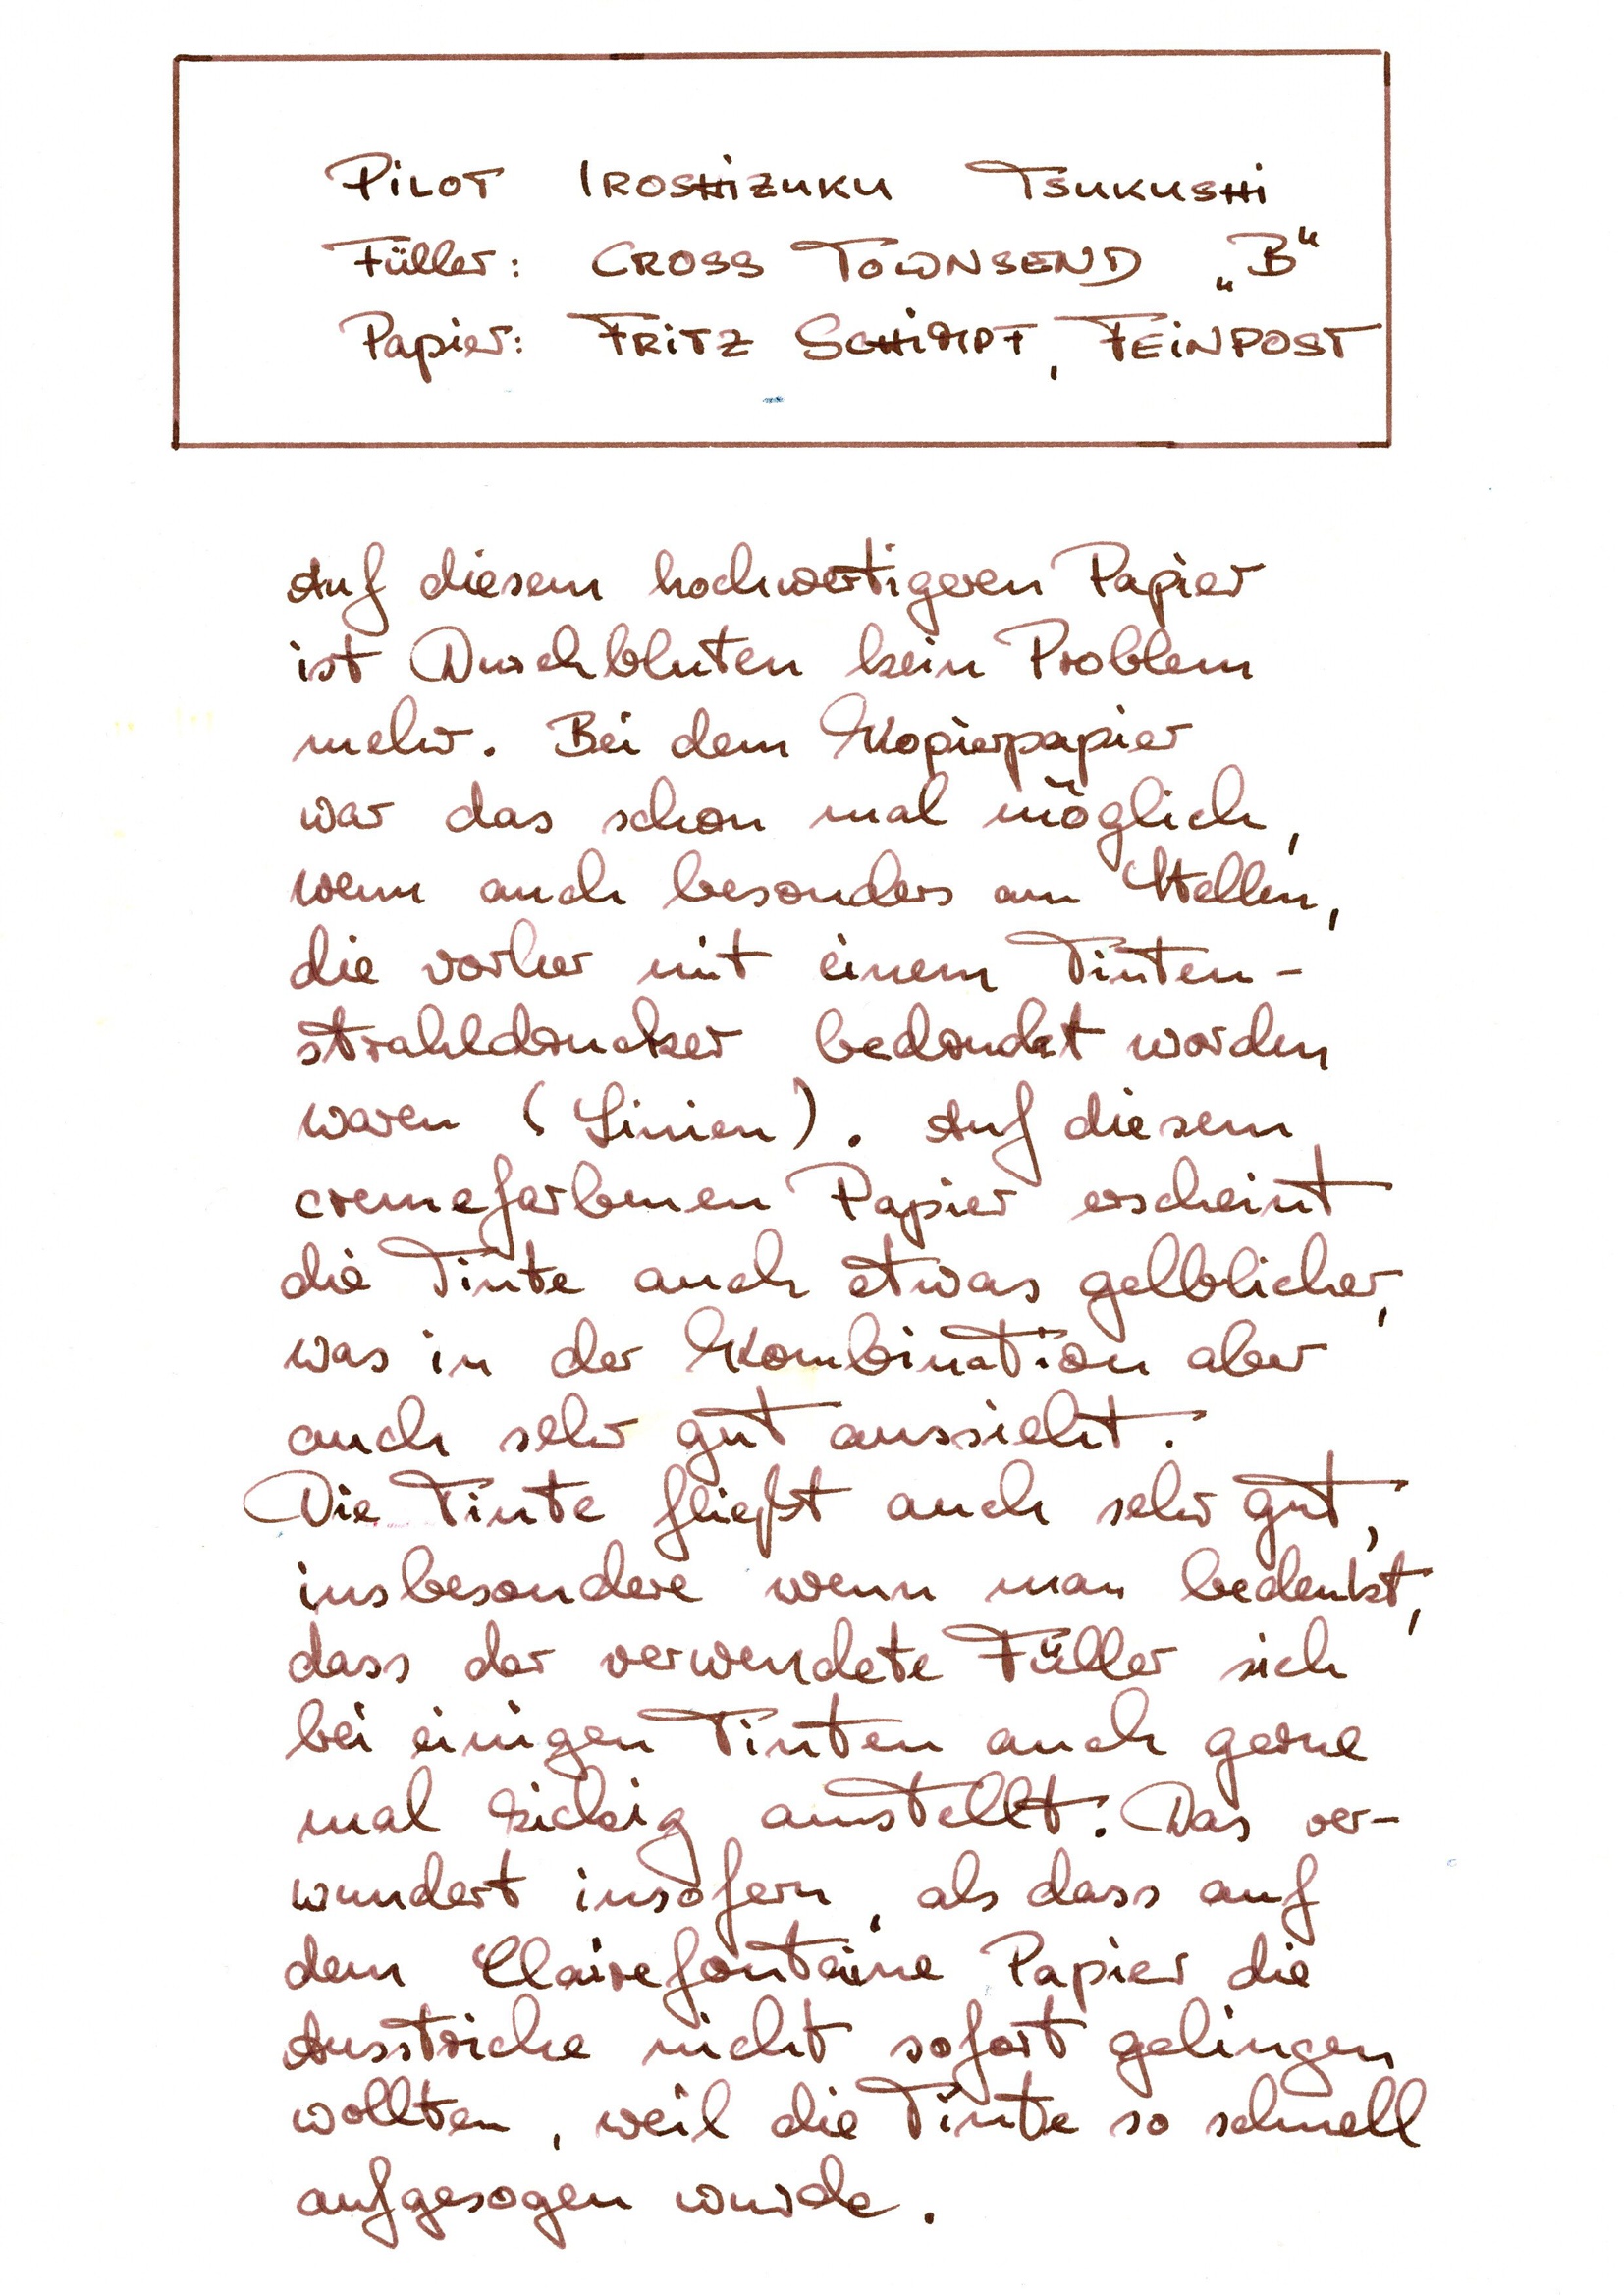 PILOT IROSHIZUKU TSUKUSHI
Füller: CROSS TOWNSEND „B“
Papier: FRITZ SCHIMPF, FEINPOST
Auf diesem hochwertigeren Papier
ist Durchbluten kein Problem
mehr. Bei dem Kopierpapier
war das schon mal möglich,
wenn auch besonders an Stellen,
die vorher mit einem Tinten-
strahldrucker bedruckt worden
waren (Linien). Auf diesem
cremefarbenen Papier erscheint
die Tinte auch etwas gelblicher,
was in der Kombination aber
auch sehr gut aussieht.
Die Tinte fließt auch sehr gut,
insbesondere wenn man bedenkt,
dass der verwendete Füller sich
bei einigen Tinten auch gerne
mal zickig anstellt. Das ver-
wundert insofern, als dass auf
dem Clairefontaine Papier die
Ausstriche nicht sofort gelingen
wollten, weil die Tinte so schnell
aufgesogen wurde.